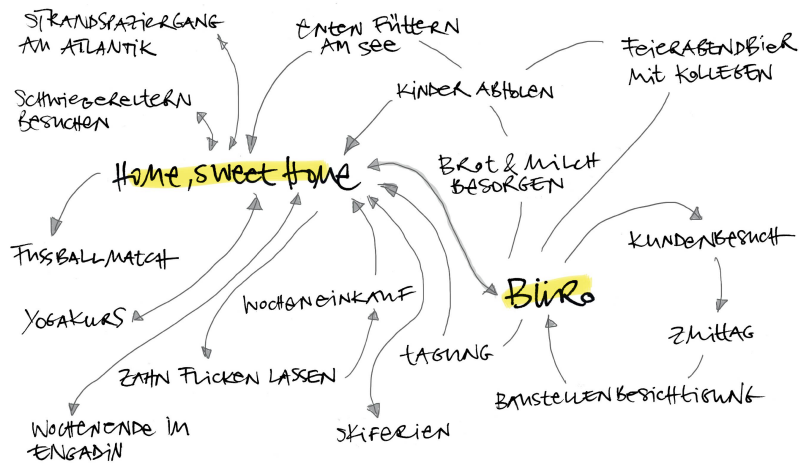 STRANDSPAZIERGANG
AM ATLANTIK
ENTEN FÜTTERN
AM SEE
FEIERABENDBIER
MIT KOLLEGEN
SCHWIEGERELTERN
BESUCHEN
KINDER ABHOLEN
HOME, SWEET HOME
BROT & MILCH
BESORGEN
FUSSBALLMATCH
KUNDENBESUCH
YOGAKURS
WOCHENEINKAUF
BÜRO
ZAHN FLICKEN LASSEN
TAGUNG
ZMITTAG
BAUSTELLENBESICHTIGUNG
WOCHENENDE IM
ENGADIN
SKIFERIEN